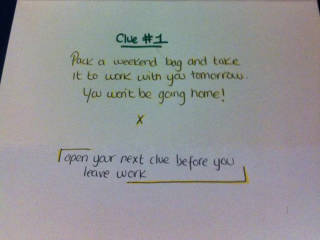 Clue #1
Pack a weekend bag and take
it to work with you tomorrow.
You won't be going home!
x
open your next clue before you
leave work